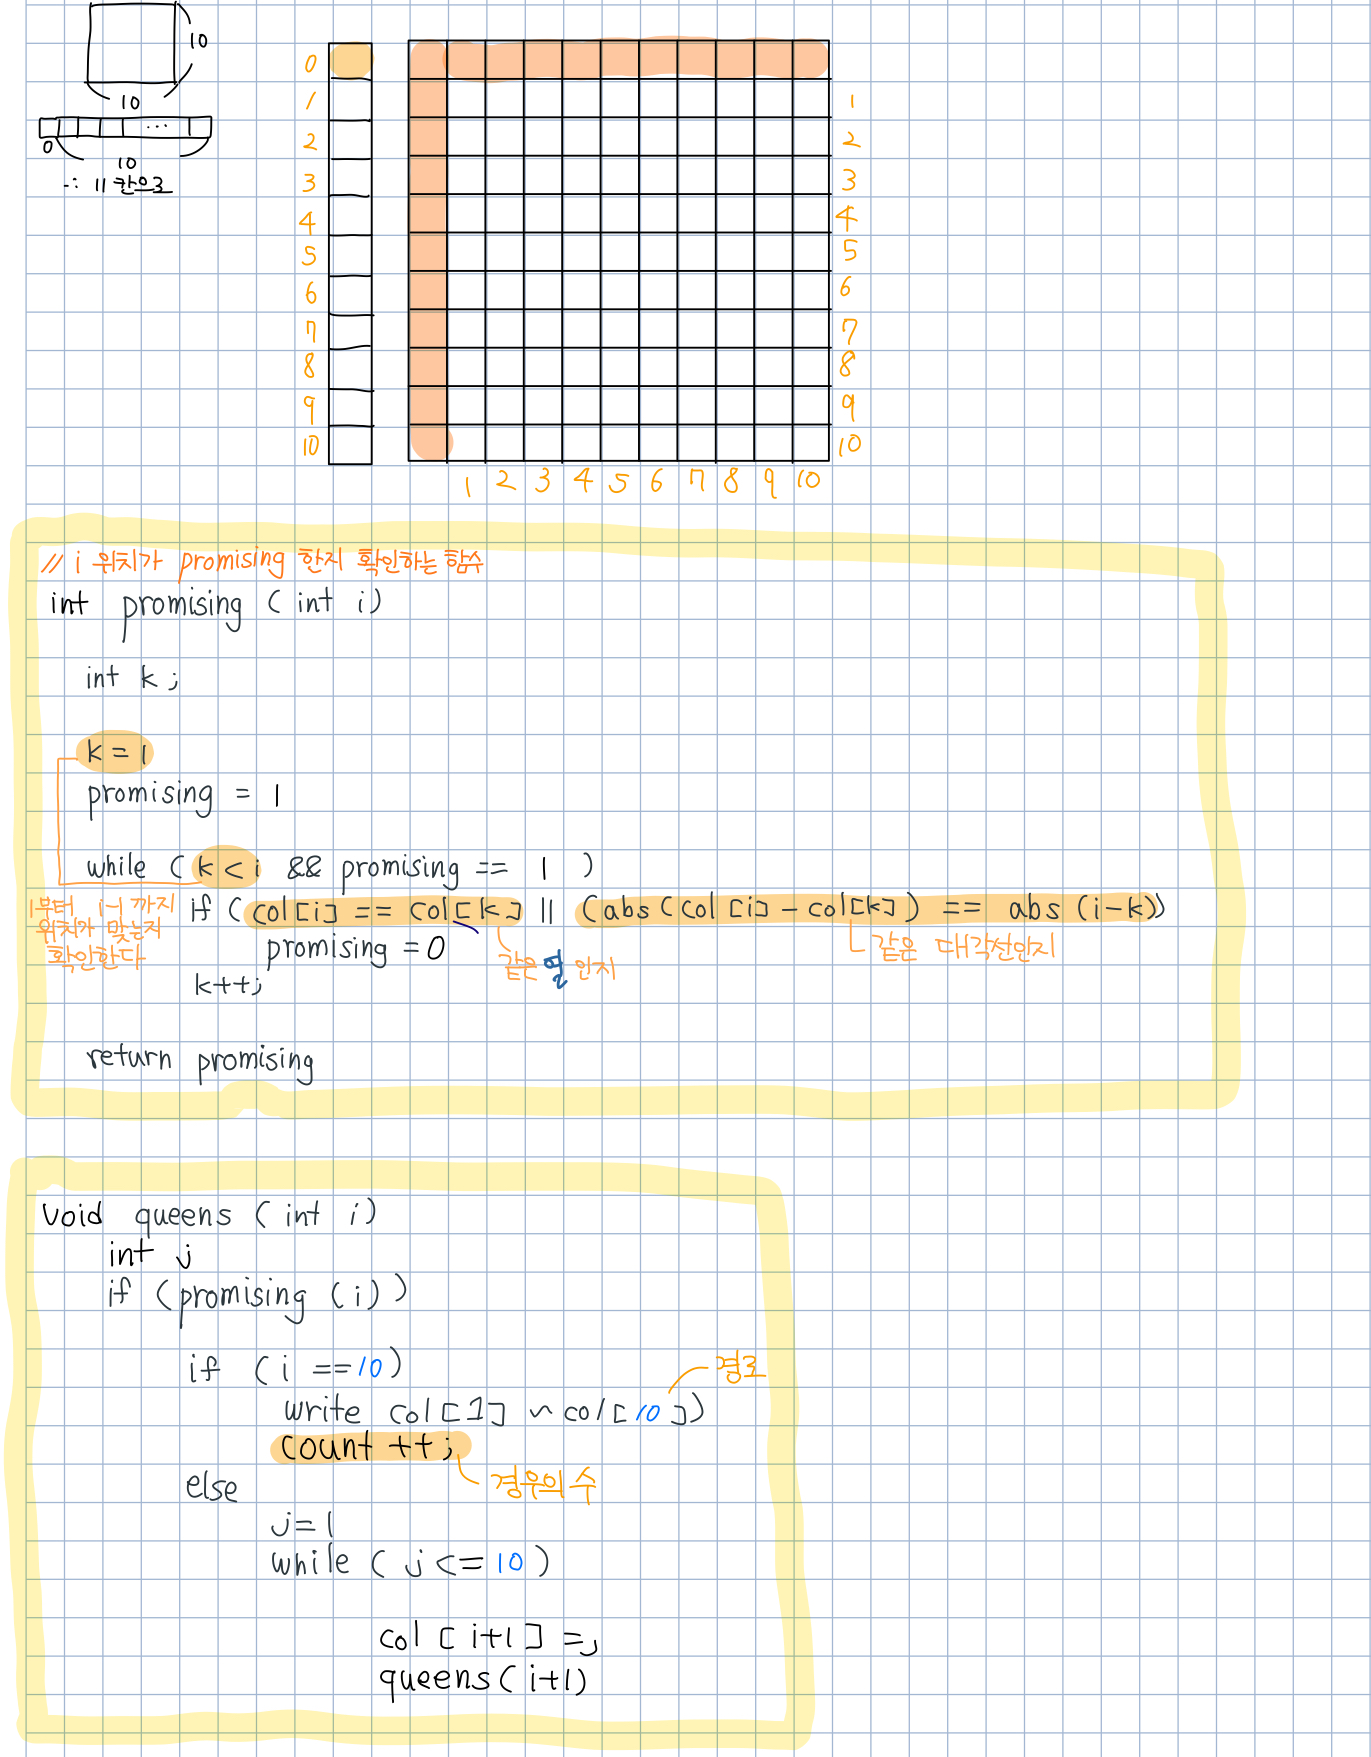 10
10
0
10
∴ 11칸으로
0
1
2
3
4
5
6
7
8
9
10
1
2
3
4
5
6
7
8
9
10
1 2 3 4 5 6 7 8 9 10
// i 위치가 promising 한지 확인하는 함수
int promising (int i)
int k;
k = 1
promising = 1
while (k < i && promising == 1)
if (col[i] == col[k] || (abs(col[i] - col[k]) == abs (i-k))
1부터 i-1 까지
위치가 맞는지
확인한다
promising = 0
같은 열 인지
같은 대각선인지
k++;
return promising
void queens (int i)
int j
if (promising (i))
if (i == 10)
경로
write col[1] ~ col[10])
count ++;
경우의 수
else
j = 1
while (j <= 10)
col [i+1] = j
queens(i+1)